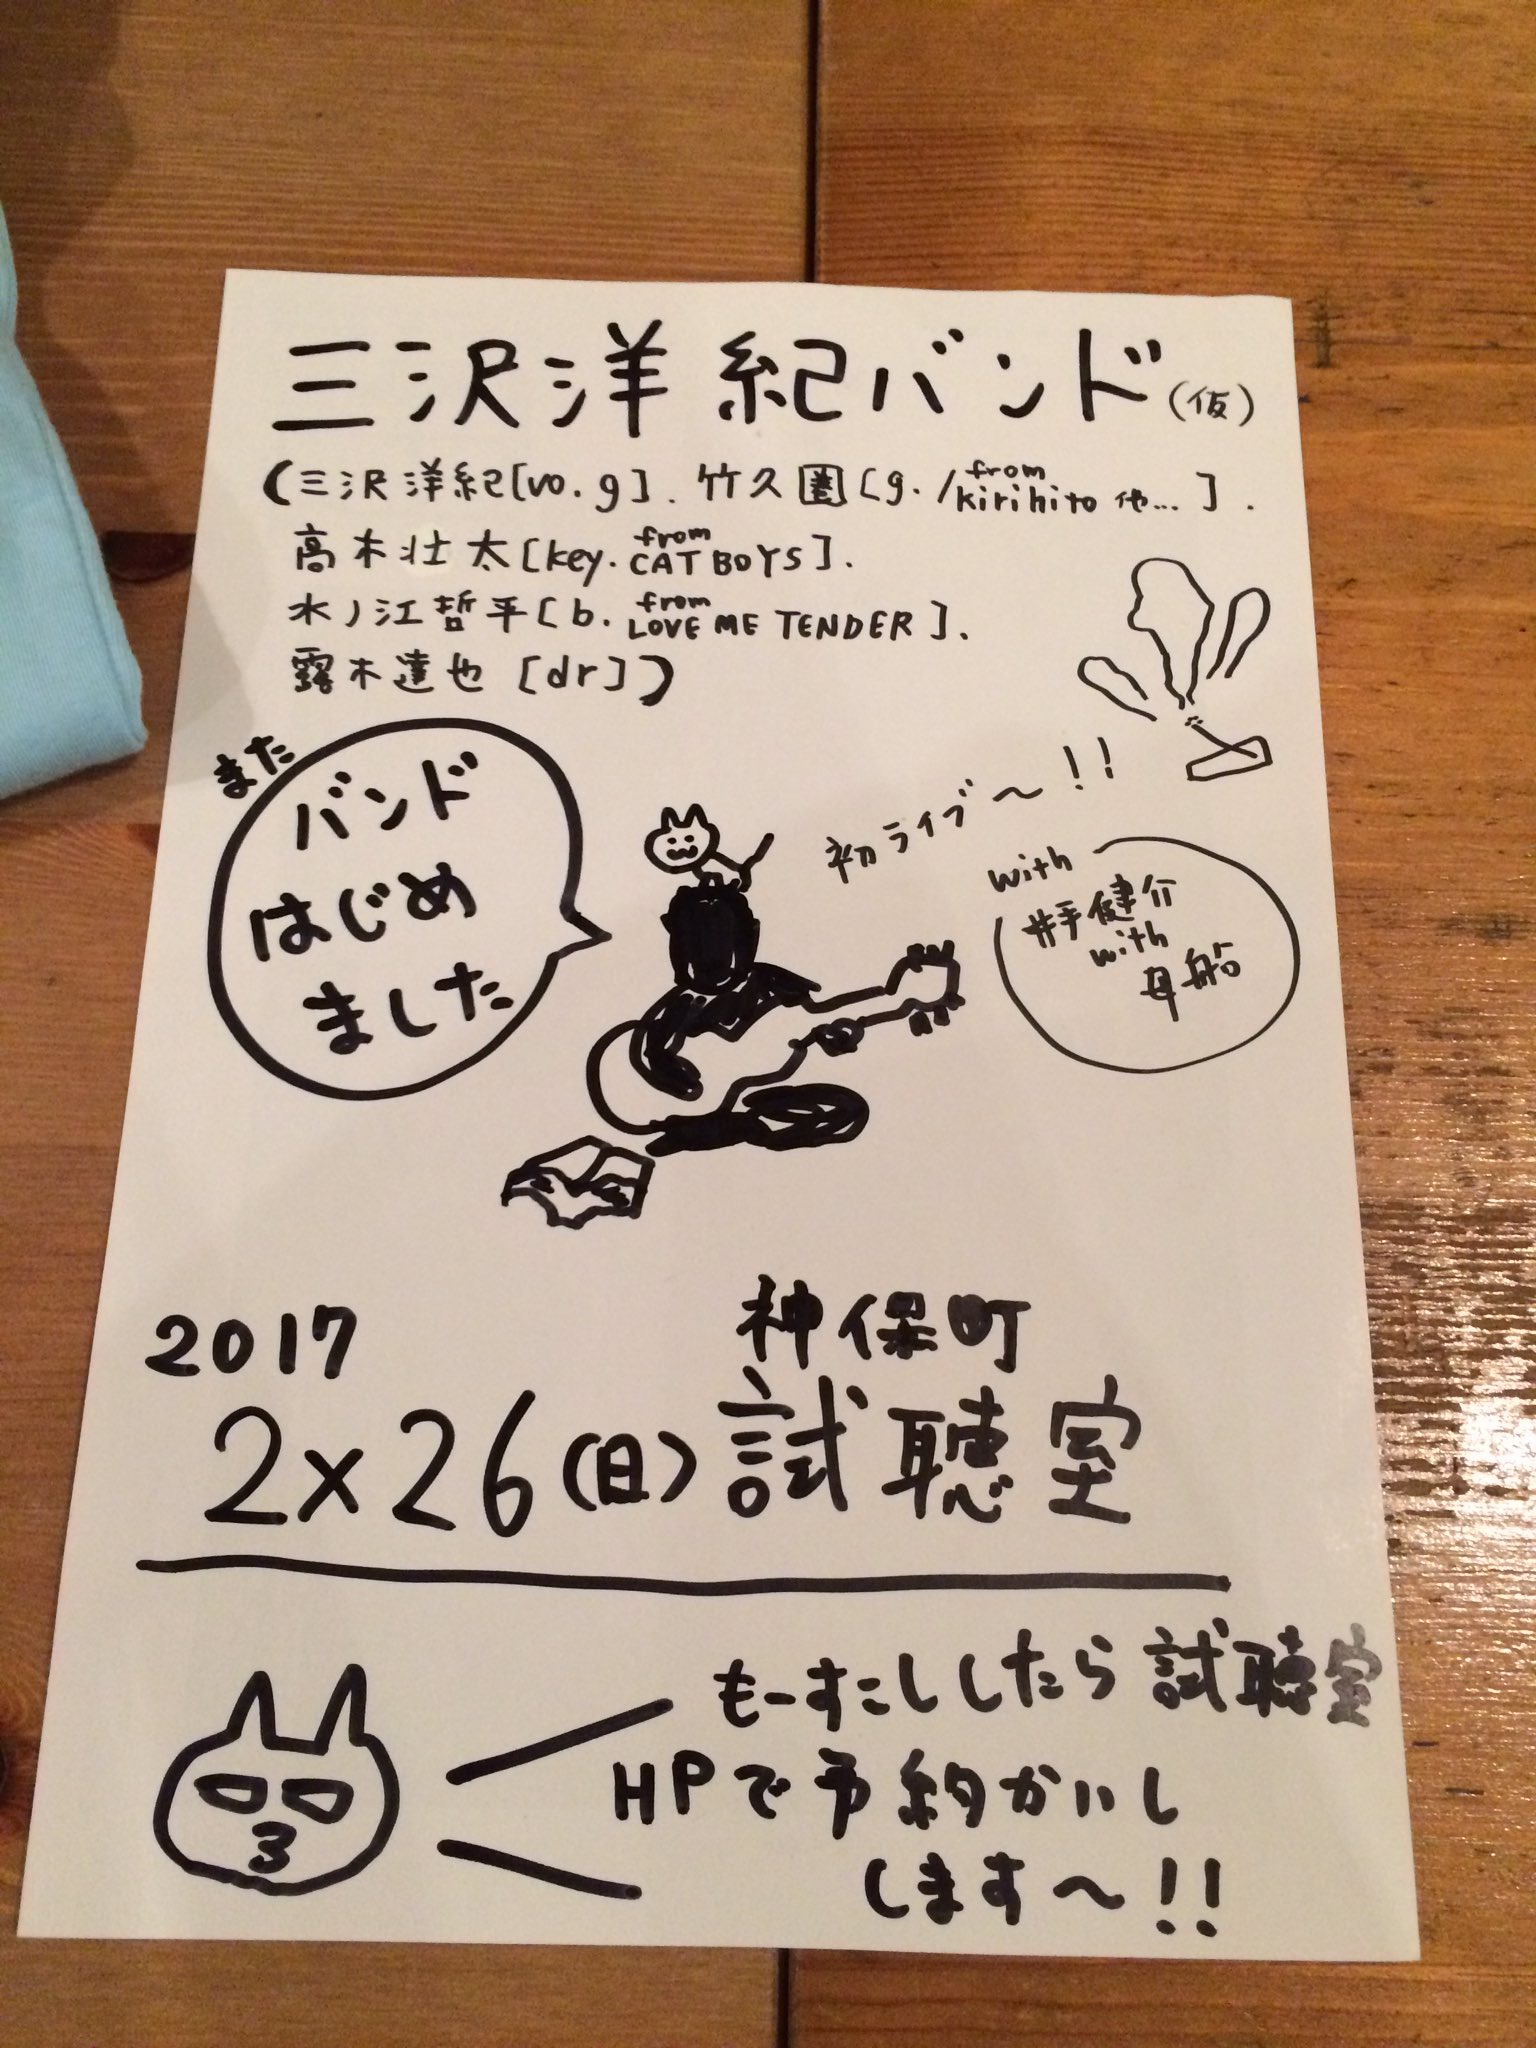 三沢洋紀バンド(仮)
(三沢洋紀[vo.g]. 竹久圏[g./from kirihito 他...].
高木壮太[key. from CAT BOYS].
水ノ江哲平[b. from LOVE ME TENDER].
露木達也[dr])
また
バンド
はじめ
ました
初ライブ〜!!
with
井手健介
with
母船
2017
2×26(日)
神保町
試聴室
もーすこししたら試聴室
HPで予約かいし
します〜!!